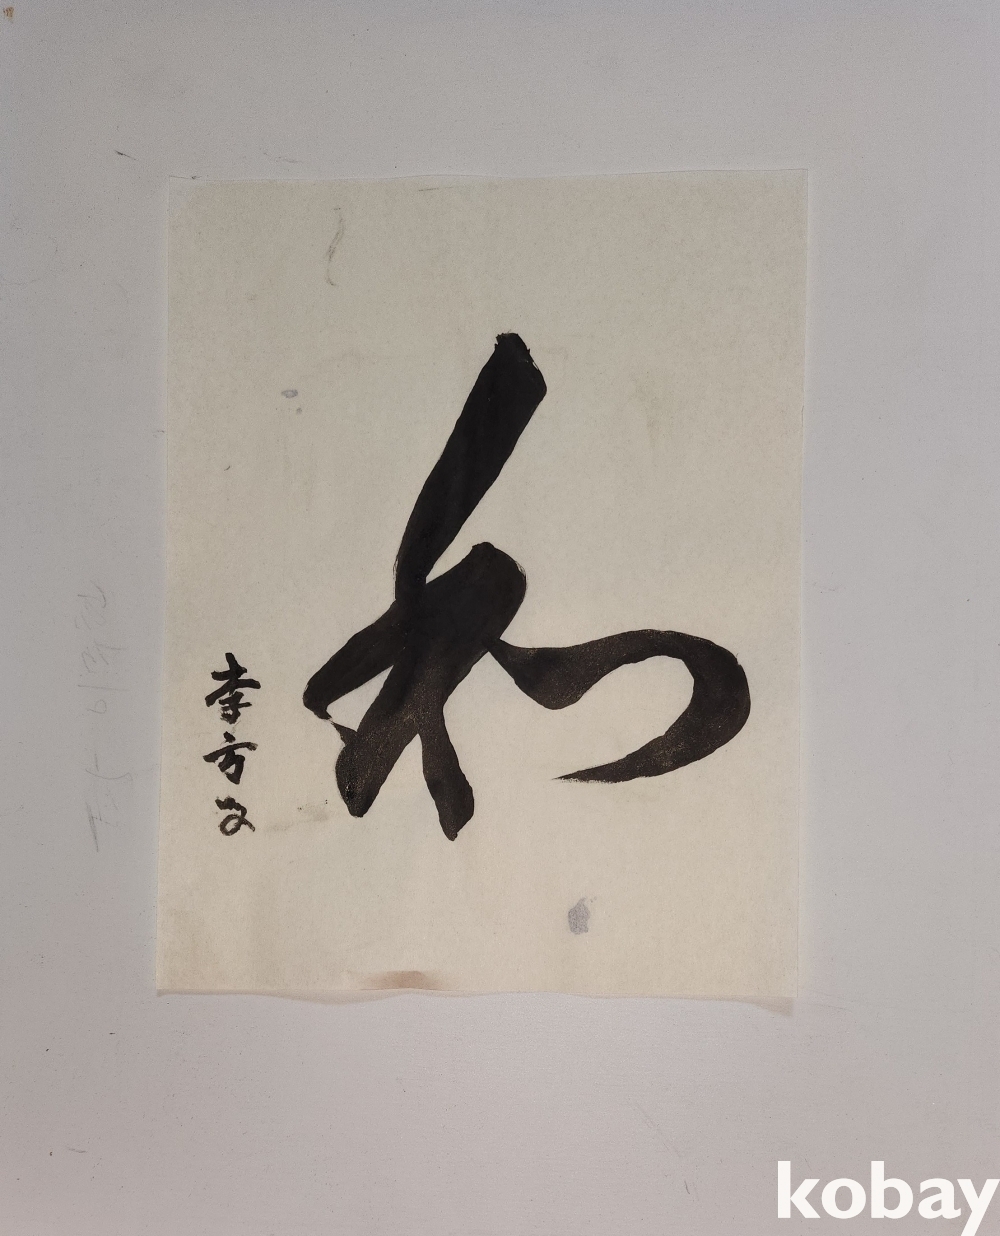 和
李方子
kobay